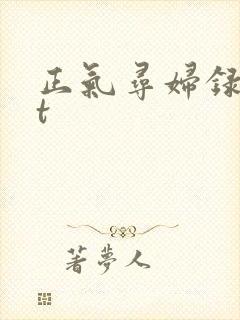 正氣尋婦録
t
著夢人